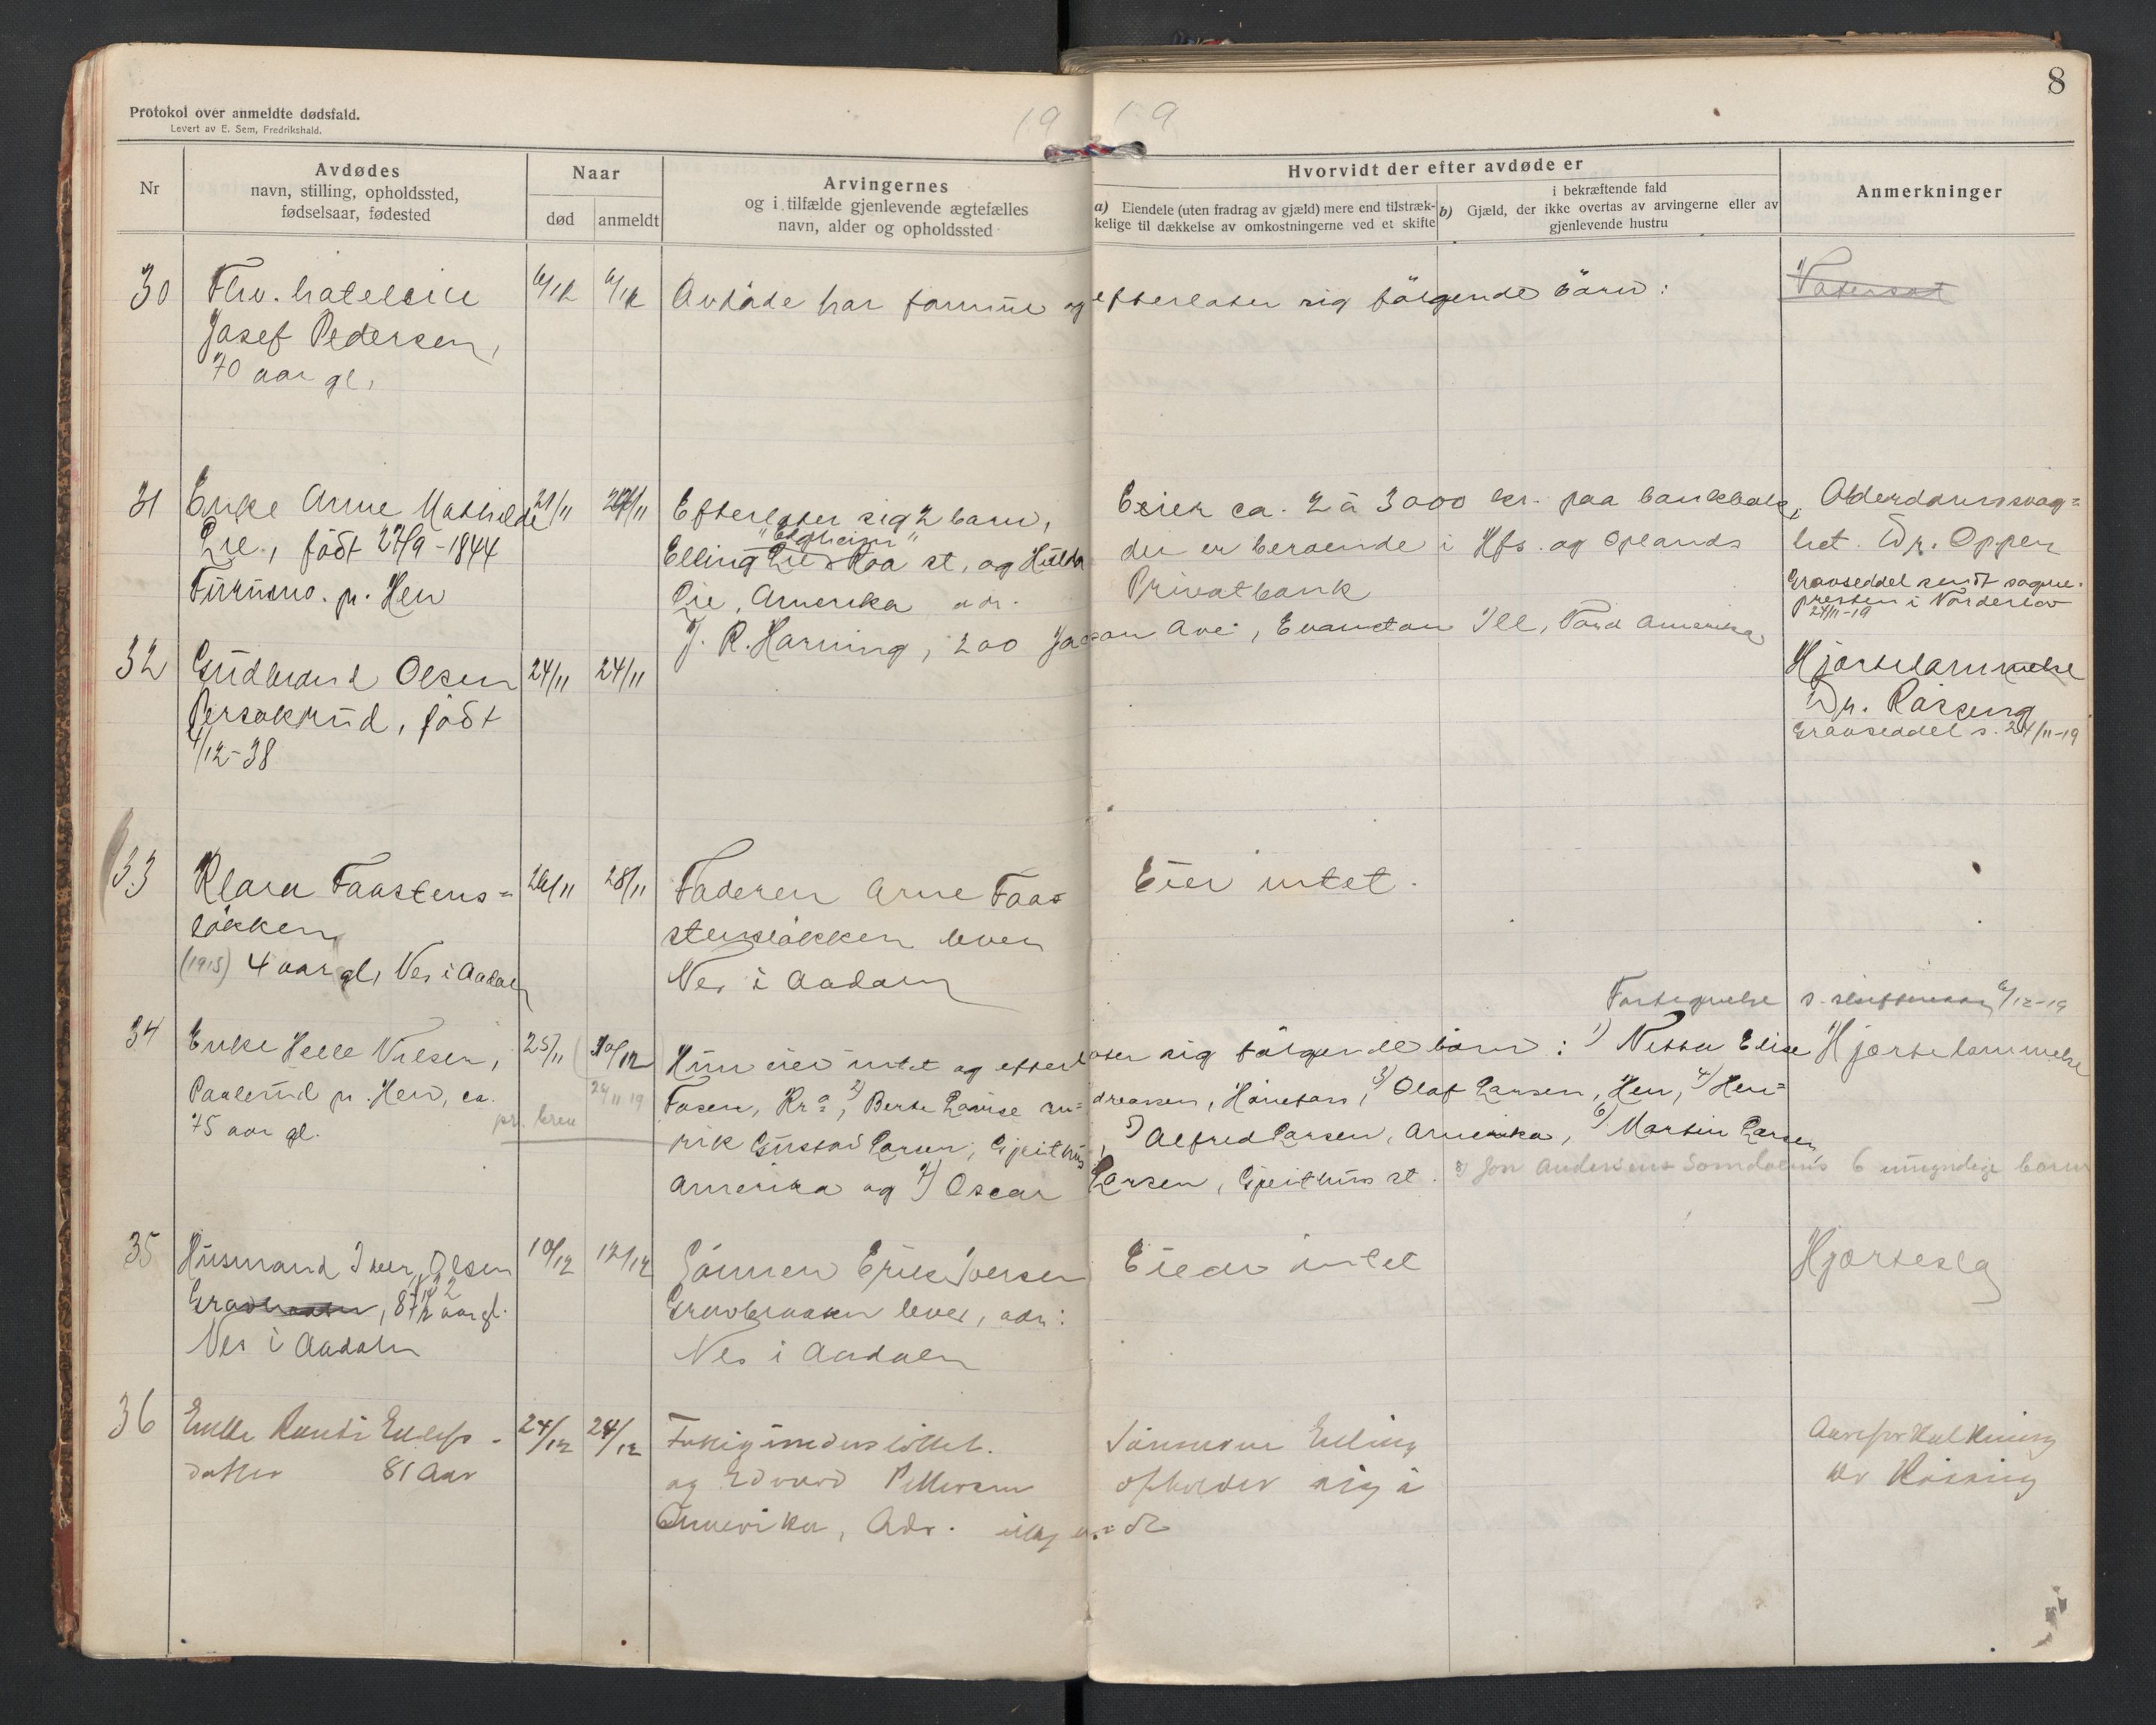 8
Protokol over anmeldte dødsfald.
Levert av E. Sem, Fredrikshald.
19 19
Nr
Avdødes
navn, stilling, opholdssted,
fødselsaar, fødested
Naar
død
anmeldt
Arvingernes
og i tilfælde gjenlevende ægtefælles
navn, alder og opholdssted
Hvorvidt der efter avdøde er
a) Eiendele (uten fradrag av gjæld) mere end tilstræk-
kelige til dækkelse av omkostningerne ved et skifte
i bekræftende fald
b) Gjæld, der ikke overtas av arvingerne eller av
gjenlevende hustru
Anmerkninger
30 Fhv. hoteleier Avdøde har formue og efterlater sig følgende børn:
Josef Pedersen,
70 aar gl.
31 Enke Anne Mathilde 21/11 Efterlater sig 2 barn, Eier ca. 2 à 3000 kr. paa bankbok, Alderdomssvag=
Lie, født 27/9-1844 Elling Lie Roa st. og Hulda der er beroende i Hfs. og Oplands het. Dr. Oppen
Furumo. p. Hen Lie, Amerika adr. Privatbank Gravseddel sendt sogne-
presten i Norderhov
24/11-19
J. R. Harning, 200 Ave, Evanston Ill, Nord Amerika
32 Gudbrand Olsen 24/11 24/11 Hjertelammelse
født Dr. Røssing
1/12-38 Gravseddel s. 24/11-19
33 Klara Faastens= 26/11 28/11 Faderen Arne Faa= Eier intet.
løkken stensløkken lever
(1915) 4 aar gl, Nes i Aadalen Nes i Aadalen
6/12-19
34 Enke Helle Nilsen, 25/11 Hun eier intet og efterlater sig følgende børn: 1) Elise Hjertelammelse
Paalerud p. Hen, ca. 24/11 19 Fosen, Kr.a, 2) Berte Lovise Andreassen, Hønefoss, 3) Olaf Larsen, Hen, 4) Hen=
75 aar gl. pr. brev rik Gustav Larsen, Gjeithus, 5) Alfred Larsen, Amerika, 6) Martin Larsen
Amerika og 7) Oscar Larsen, Gjeithus st. 8) Jon Andersens 6 umyndige barn
35 Husmand Iver Olsen 10/12 12/12 Sønnen Erik Iversen Eier intet Hjerteslag
aar gl. Gravbraaten lever, adr:
Nes i Aadalen Nes i Aadalen
36 Enke Randi 24/12 24/12 Sønnerne Elling Aareforkalkning
datter 81 Aar og Edvard Pettersen opholder sig i Dr Røssing
Amerika, Adr.